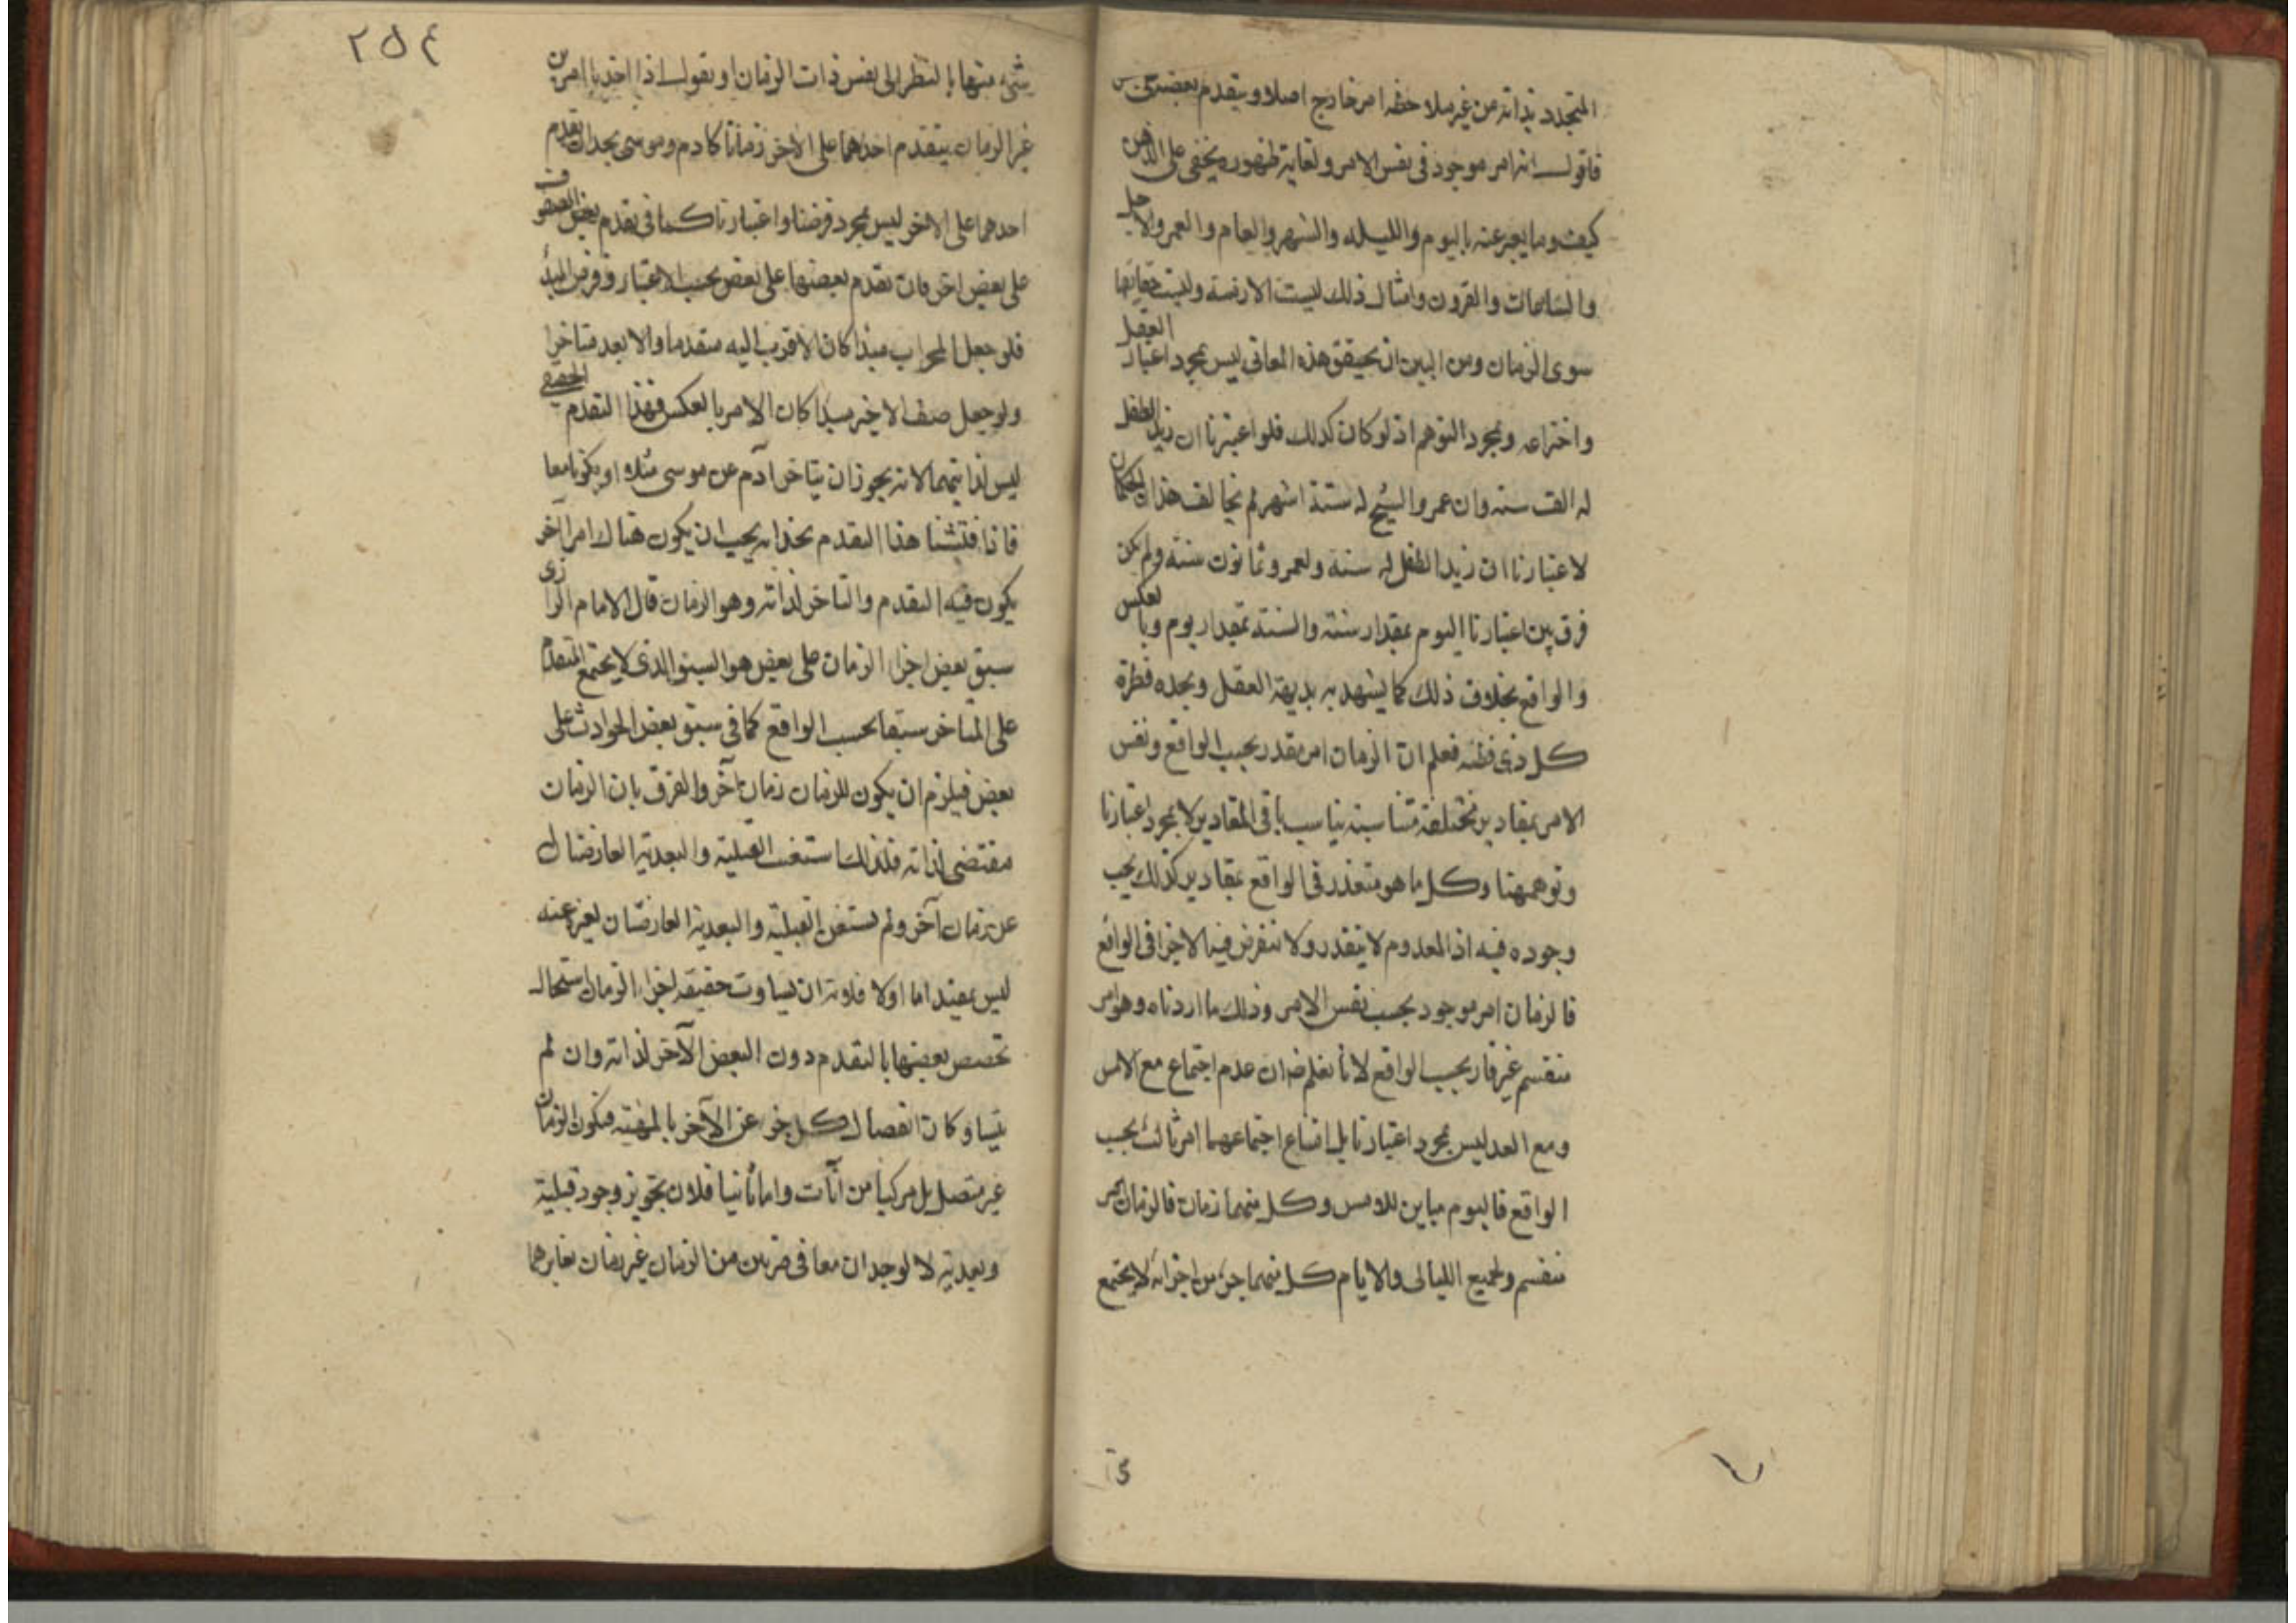 المتجدد بذاته من غير ملاحظة امر خارج اصلا ويتقدم بعضه
فاقول انه امر موجود فى نفس الامر ولغاية ظهوره يخفى على الذهن
كيف وما يعبر عنه باليوم والليلة والشهر والعام والعمر والاجل
والساعات والقرون وامثال ذلك ليست الا ازمنة وليست حقايقها
سوى الزمان ومن البين ان تحقق هذه المعانى ليس بمجرد اعتبار العقل
واختراعه وبمجرد التوهم اذ لو كان كذلك فلو اعتبرنا ان زيد الطفل
له الف سنة وان عمرو الشيخ له ستة اشهر لم يخالف هذان الحكمان
لاعتبارنا ان زيدا الطفل له سنة ولعمرو ثمانون سنة ولم يكن
فرق بين اعتبارنا اليوم بمقدار سنة والسنة بمقدار يوم وبالعكس
والواقع بخلاف ذلك كما يشهد به بديهة العقل ويجده فطرة
كل ذى فطنة فعلم ان الزمان امر يقدر بحسب الواقع ونفس
الامر بمقادير مختلفة متناسبة يناسب باقى المقادير لا بمجرد اعتبارنا
وتوهمنا وكل ما هو متقدر فى الواقع بمقادير كذلك يجب
وجوده فيه اذ المعدوم لا يتقدر ولا تنفرض فيه الاجزا فى الواقع
فالزمان امر موجود بحسب نفس الامر وذلك ما اردناه وهو امر
منقسم غير قار بحسب الواقع لانا نعلم ان عدم اجتماع مع الامس
ومع الغد ليس بمجرد اعتبارنا بل امتناع اجتماعهما امر ثابت بحسب
الواقع فاليوم مباين للامس وكل منهما زمان فالزمان امر
منقسم ولجميع الليالى والايام كل منهما جزء من اجزائه لا يجتمع
٢٥٤
شىء منها بالنظر الى نفس ذات الزمان او نقول اذا اخذنا امرين
غير الزمان يتقدم احدهما على الاخر زمانا كادم وموسى نجد ان تقدم
احدهما على الاخر ليس بمجرد فرضنا واعتبارنا كما فى تقدم بعض الصفوف
على بعض اخر فان تقدم بعضها على بعض بحسب الاعتبار وفرض المبدأ
فلو جعل المحراب مبدأ كان الاقرب اليه متقدما والابعد متاخرا
ولو جعل صف الاخير مبدا كان الامر بالعكس فهذا التقدم الحقيقى
ليس لذاتيهما لانه يجوز ان يتاخر آدم عن موسى مثلا او يكونا معا
فاذا فتشنا هذا التقدم نجد انه يجب ان يكون هناك امر آخر
يكون فيه التقدم والتاخر لذاته وهو الزمان قال الامام الرازى
سبق بعض اجزاء الزمان على بعض هو السبق الذى لا يجتمع المتقدم
على المتاخر سبقا بحسب الواقع كما فى سبق بعض الحوادث على
بعض فيلزم ان يكون للزمان زمان آخر والفرق بان الزمان
مقتضى لذاته فلذلك استغنت القبلية والبعدية العارضتان
عن زمان آخر ولم يستغن القبلية والبعدية العارضتان لغيره عنه
ليس بمفيد اما اولا فلانه ان تساوت حقيقة اجزاء الزمان استحال
تخصص بعضها بالتقدم دون البعض الآخر لذاته وان لم
يتساو كان انفصال كل جزء عن الآخر بالمهية فيكون الزمان
غير متصل بل مركبا من آنات واما ثانيا فلان تجويز وجود قبلية
وبعدية لا يوجدان معا فى جزئين من الزمان غير زمان يغايرهما